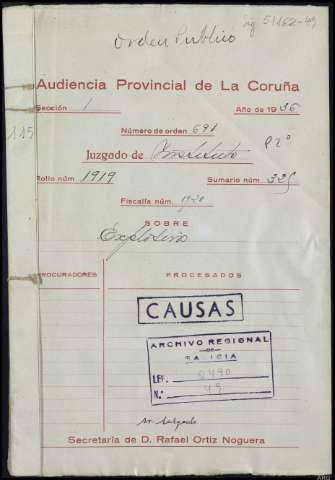 Orden Publico
Audiencia Provincial de La Coruña
Sección 1 Año de 1936
115
Número de orden 691
Juzgado de Instituto P2º
Rollo núm 1919 Sumario núm. 335
Fiscalía núm.
SOBRE
Explosivo
PROCURADORES PROCESADOS
CAUSAS
ARCHIVO REGIONAL
DE
GALICIA
LEG.
N.º 49
Secretaría de D. Rafael Ortiz Noguera